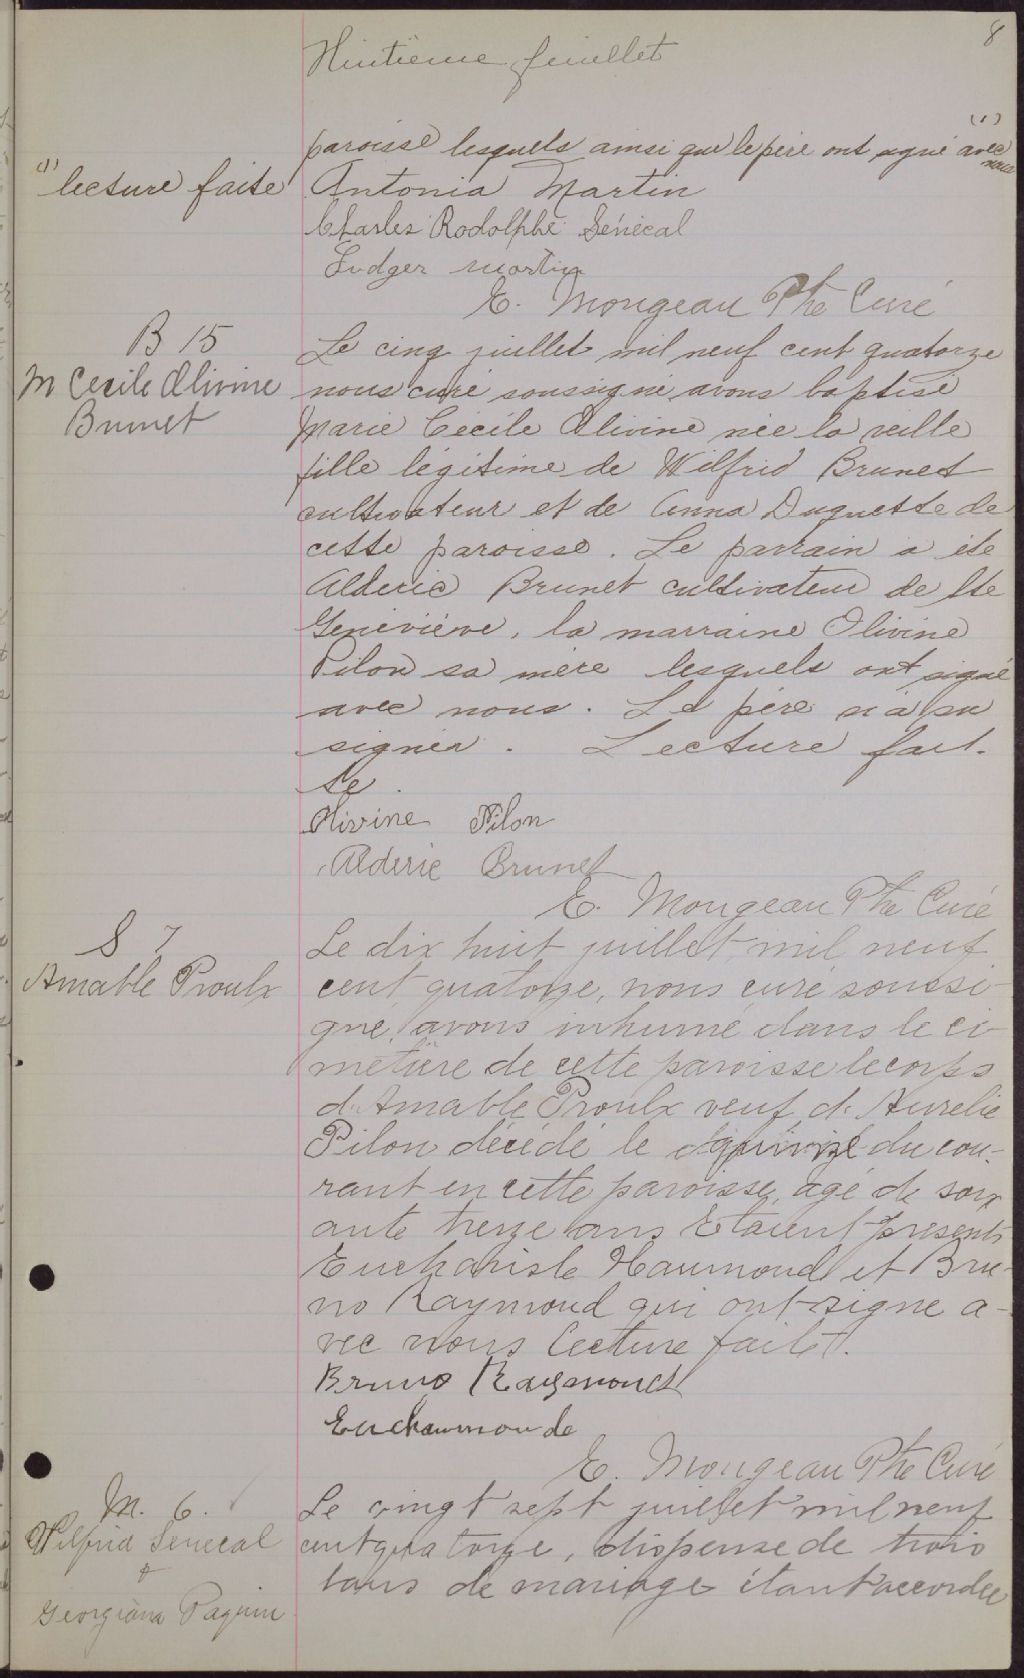 8
Huitième feuillet
(1)
paroisse lesquels ainsi que le père ont signé avec
nous
(1) lecture faite
Antonia Martin
Charles Rodolphe Sénécal
Ludger Martin
E. Mongeau Ptre Curé
B 15
M Cecile Olivine
Brunet
Le cinq juillet mil neuf cent quatorze
nous curé soussigné avons baptisé
Marie Cécile Olivine née la veille
fille légitime de Wilfrid Brunet
cultivateur et de Anna Duquette de
cette paroisse. Le parrain a été
Alderic Brunet cultivateur de Ste
Geneviève, la marraine Olivine
Pilon sa mère lesquels ont signé
avec nous. Le père n'a su
signer. Lecture fait-
te.
Olivine Pilon
Alderic Brunet
E. Mongeau Ptre Curé
S 7
Amable Proulx
Le dix huit juillet mil neuf
cent quatorze, nous curé soussi-
gné, avons inhumé dans le ci-
metière de cette paroisse le corps
d'Amable Proulx veuf d'Aurelie
Pilon décédé le quinze du cou-
rant en cette paroisse, agé de soix
ante treize ans Etaient présents
Euchariste Haumond et Bru-
no Raymond qui ont signé a-
vec nous Lecture faite.
Bruno Raymond
E. Mongeau Ptre Curé
M. 6.
Wilfrid Senecal
&
Georgiana Paquin
Le vingt sept juillet mil neuf
cent quatorze, dispense de trois
bans de mariage étant accordée